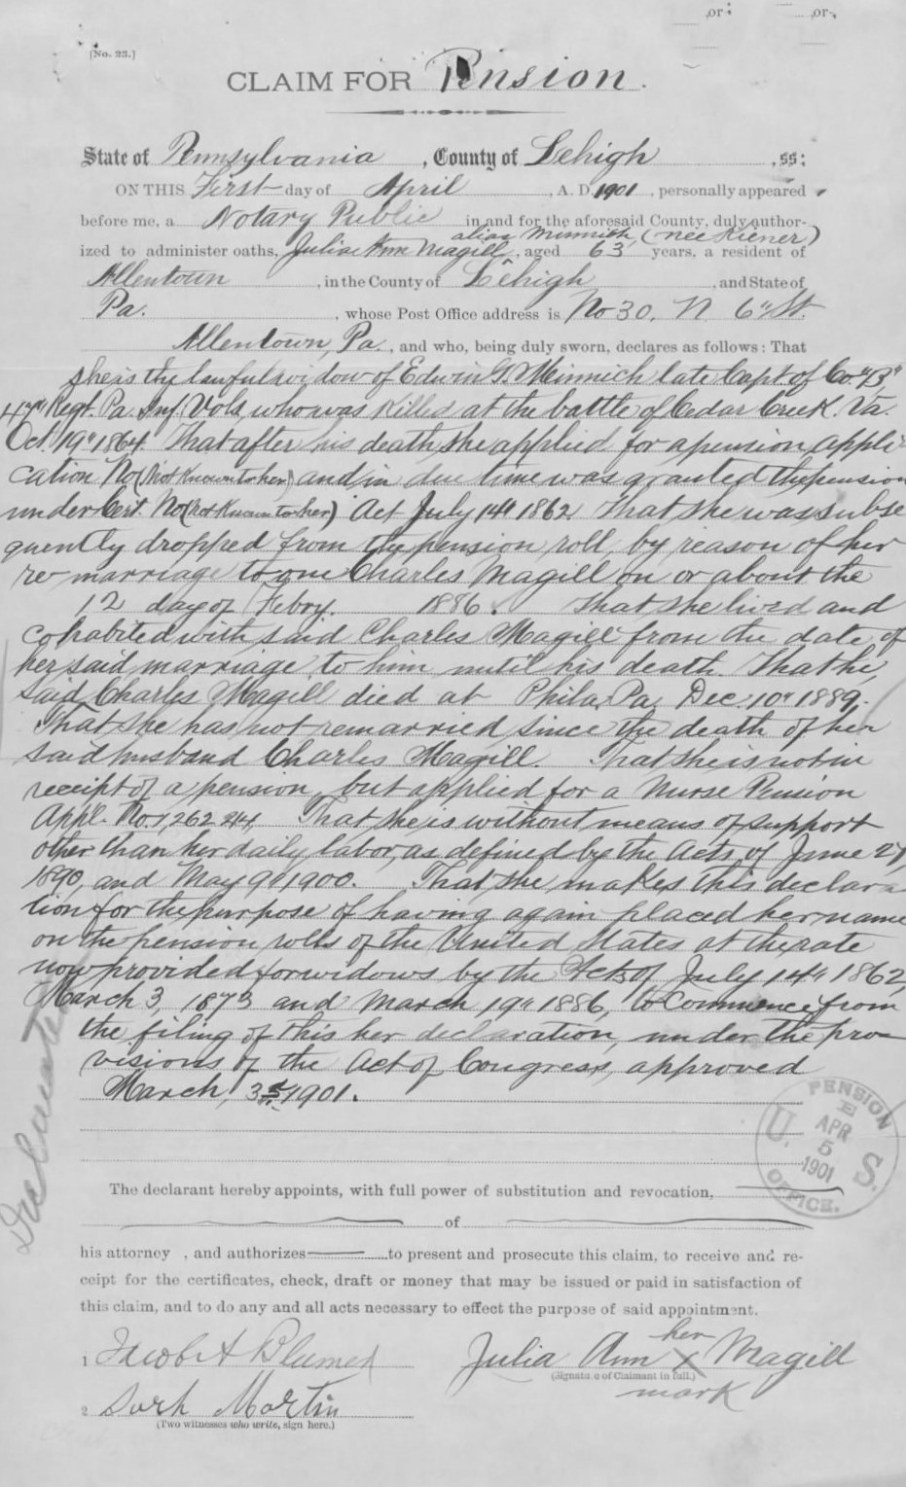 (No. 22.)
CLAIM FOR Pension.
State of Pennsylvania, County of Lehigh, ss:
ON THIS First day of April, A. D. 1901, personally appeared
before me, a Notary Public in and for the aforesaid County, duly author-
alias Minnich, (nee Kiener)
ized to administer oaths, Julia Ann Magill, aged 63 years, a resident of
Allentown, in the County of Lehigh, and State of
Pa., whose Post Office address is No 30, N. 6" St.
Allentown, Pa., and who, being duly sworn, declares as follows: That
she is the lawful widow of Edwin G. Minnich late Capt of Co. "B"
47" Regt. Pa. Inf. Vols, who was killed at the battle of Cedar Creek. Va.
Oct. 19" 1864. That after his death, she applied for a pension, appli
cation No (Not Known to her) and in due time was granted the pension
under Cert. No (Not Known to her) Act July 14" 1862. That she was subse
quently dropped from the pension roll, by reason of her
re-marriage to one Charles Magill on or about the
12 day of Febry. 1886. That she lived and
cohabited with said Charles Magill from the date of
her said marriage to him until his death. That he,
said Charles Magill died at Phila, Pa, Dec. 10" 1889.
That she has not remarried since the death of her
said husband Charles Magill. That she is not in
receipt of a pension, but applied for a Nurse Pension
Appl. No. 1,262 244, That she is without means of support
other than her daily labor, as defined by the Acts of June 27,
1890, and May 9" 1900. That she makes this declara-
tion for the purpose of having again placed her name
on the pension rolls of the United States at the rate
now provided for widows by the Acts of July 14" 1862,
March 3, 1873 and March 19" 1886, to Commence from
the filing of this her declaration, under the pro-
visions of the Act of Congress, approved
March, 3 1901.
Declaration
PENSION
U. S.
APR
5
1901
OFFICE.
The declarant hereby appoints, with full power of substitution and revocation,
of
his attorney , and authorizes to present and prosecute this claim, to receive and re-
ceipt for the certificates, check, draft or money that may be issued or paid in satisfaction of
this claim, and to do any and all acts necessary to effect the purpose of said appointment.
her
1 Jacob A Blumer Julia Ann x Magill
(Signature of Claimant in full.)
mark
2 Martin
(Two witnesses who write, sign here.)